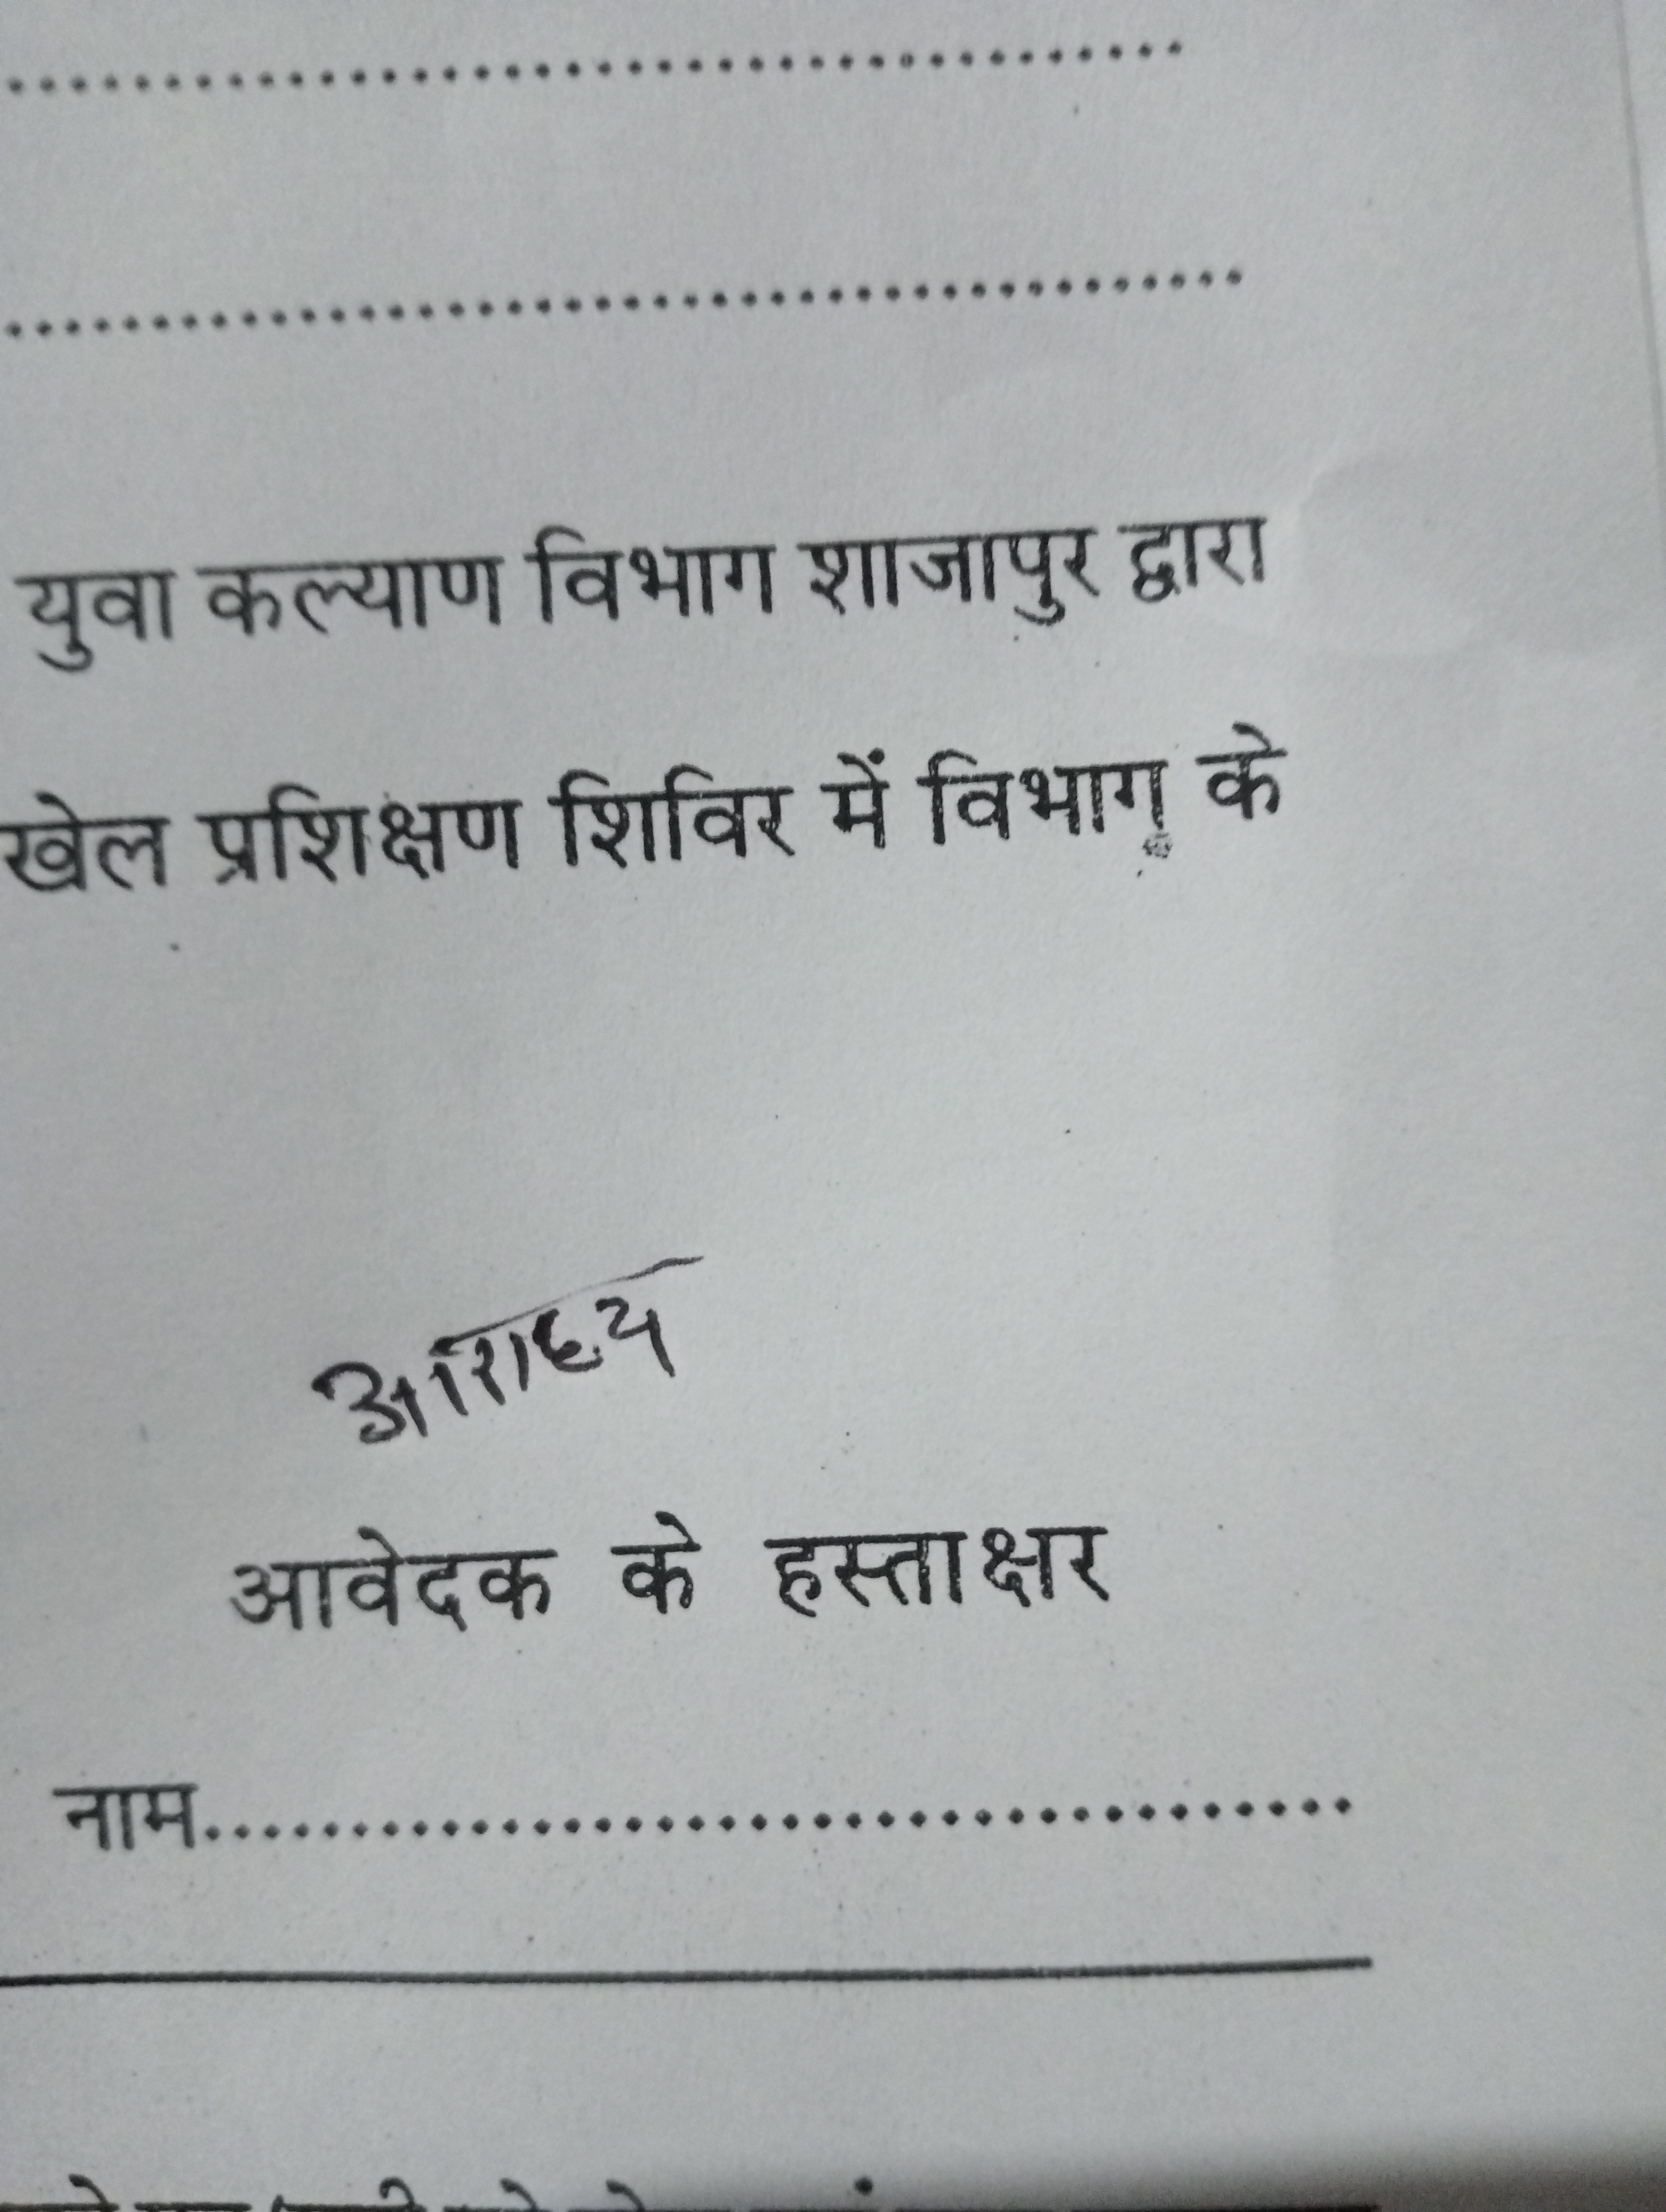 ........................................
...........................................
युवा कल्याण विभाग शाजापुर द्वारा
खेल प्रशिक्षण शिविर में विभाग के
आराध्य
आवेदक के हस्ताक्षर
नाम........................................